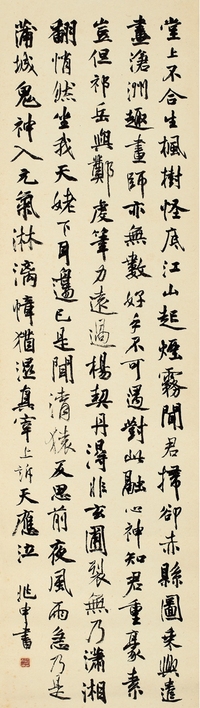 堂上不合生楓樹怪底江山起煙霧聞君掃卻赤縣圖乘興遣
畫滄洲趣畫師亦無數好手不可遇對此融心神知君重毫素
豈但祁岳與鄭虔筆力遠過楊契丹得非玄圃裂無乃瀟湘
翻悄然坐我天姥下耳邊已是聞清猿反思前夜風雨急乃是
蒲城鬼神入元氣淋漓幛猶濕真宰上訴天應泣 兆申書